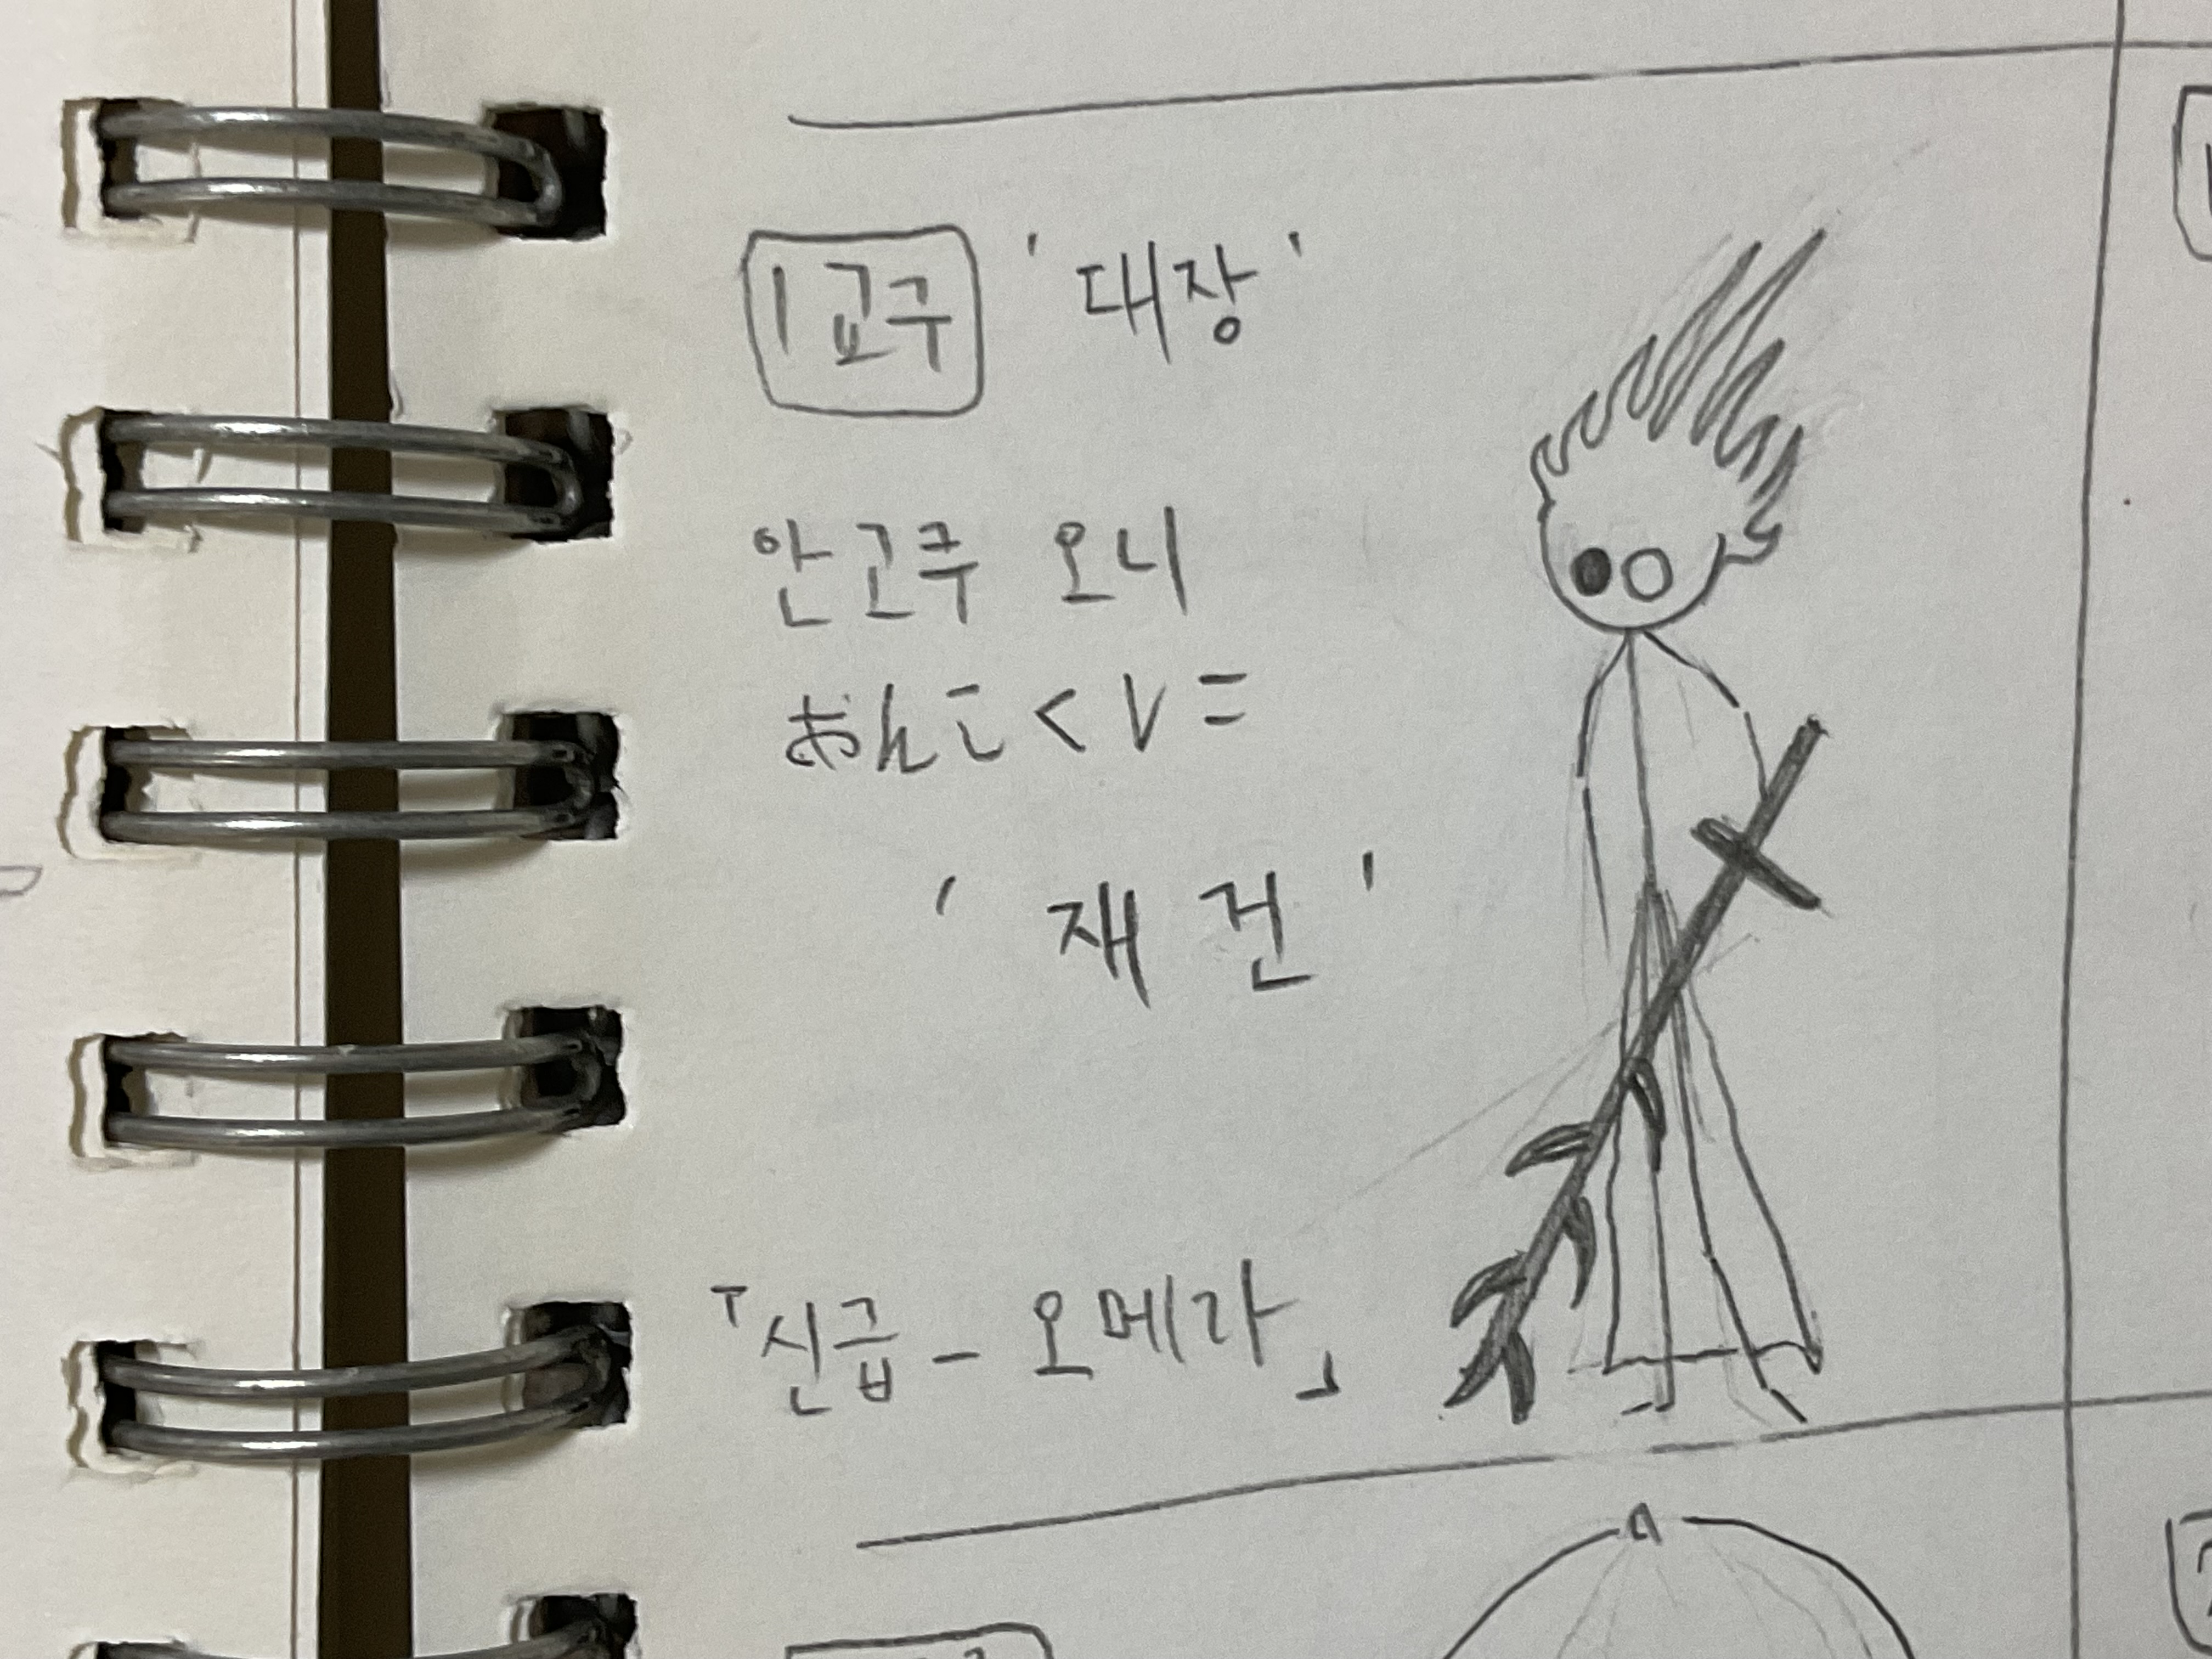 1교구 '대장'
안고쿠 오니
おんこくレニ
'재건'
「신급 - 오메라」